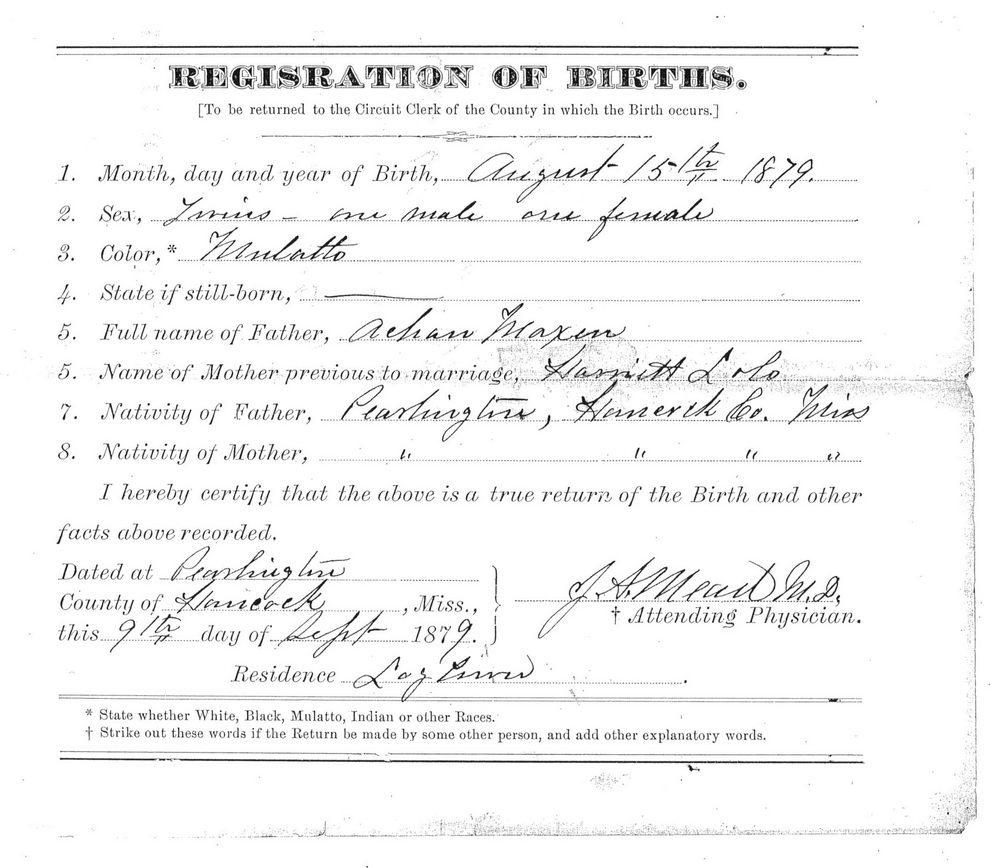 REGISRATION OF BIRTHS.
[To be returned to the Circuit Clerk of the County in which the Birth occurs.]
1. Month, day and year of Birth, August 15th 1879.
2. Sex, Twins - one male one female
3. Color,* Mulatto
4. State if still-born, —
5. Full name of Father, Achan Maxen
5. Name of Mother previous to marriage, Harriett Lolo
7. Nativity of Father, Pearlington, Hancock Co. Miss
8. Nativity of Mother, " " " "
I hereby certify that the above is a true return of the Birth and other
facts above recorded.
Dated at Pearlington
County of Hancock, Miss.,
this 9th day of Sept 1879.
J. A. Mead M.D.
† Attending Physician.
Residence Log Town.
* State whether White, Black, Mulatto, Indian or other Races.
† Strike out these words if the Return be made by some other person, and add other explanatory words.